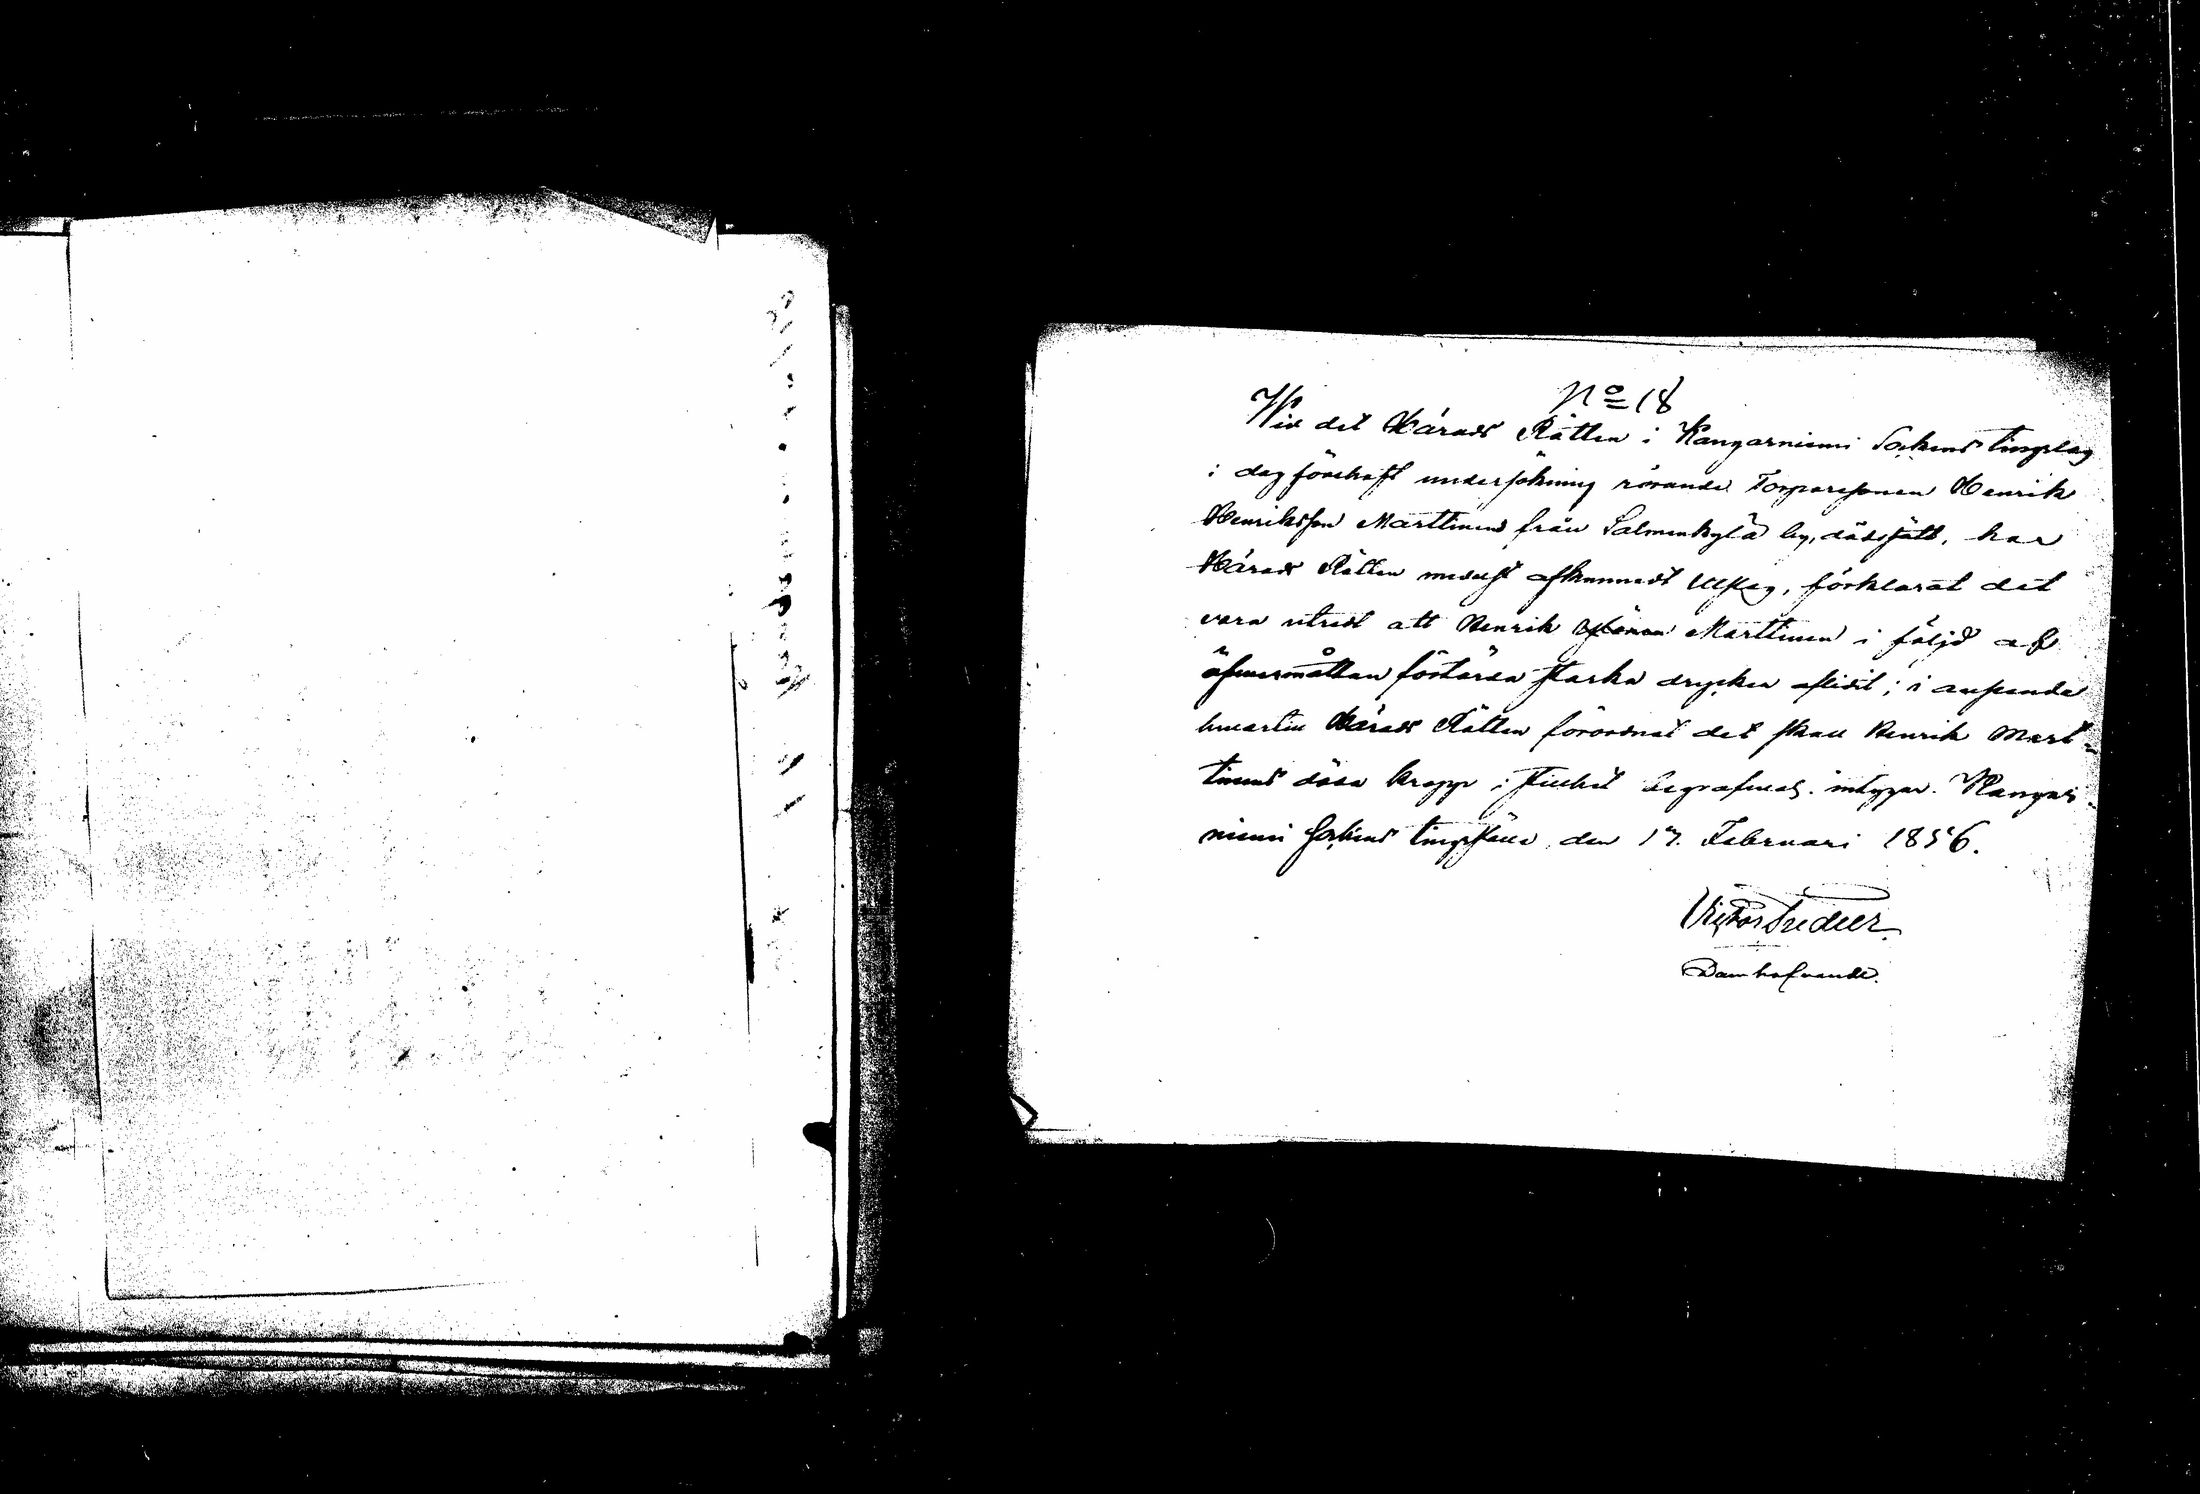 No 18
Wid det Härads Rätten i Kangasniemi Sockens tingslag
i dag förehaft undersökning rörande Torparesonen Henrik
Henriksson Marttinens från Salmenkylä by, dödssätt, har
Härads Rätten medelst afkunnadt Utslag, förklarat det
vara utredt att Henrik Marttinen i följd af
öfvermåttan förtärda starka drycker aflidit; i anseende
hwartill Härads Rätten förordnat det skall Henrik Mart-
tinens döda kropp i stillhet begrafwas. intygar. Kangas-
niemi Sockens tingställe den 17. Februari 1856.
Victor
Domhafwande.